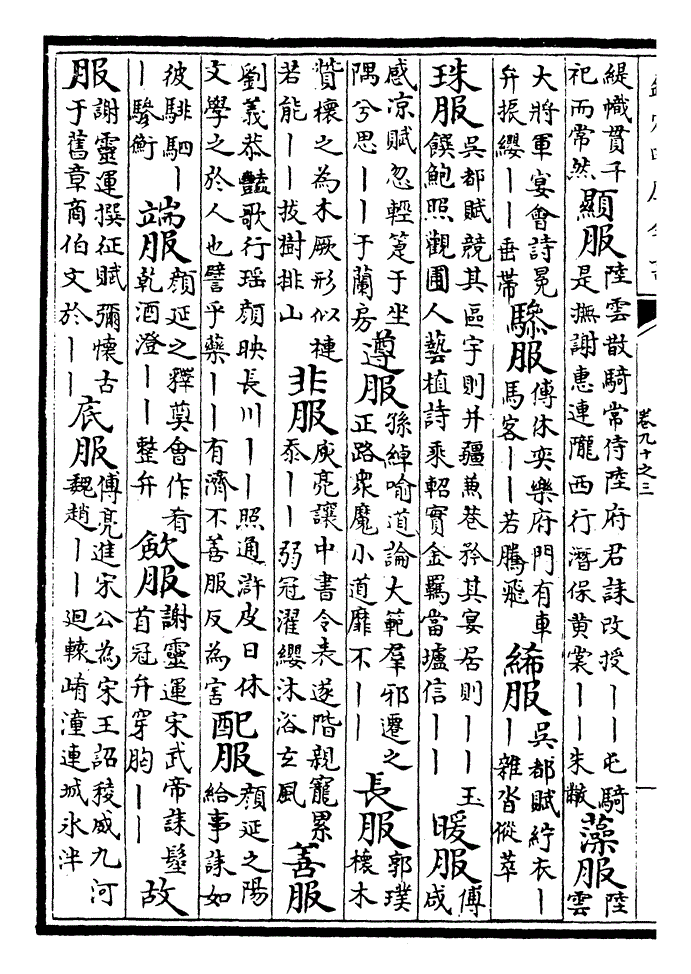 卷九十之三
緹幟貫千
祀而常然
顯服
陸雲散騎常侍陸府君誄改授｜｜屯騎
是撫謝惠連隴西行潛保黄裳｜｜朱黻
藻服
陸
雲
大將軍宴會詩冕
弁振纓｜｜垂帶
驂服
傅休奕樂府門有車
馬客｜｜若騰飛
絺服
吳都賦紵衣｜
｜雜沓傱萃
珠服
吳都賦競其區宇則并疆蒹巷矜其宴居則｜｜玉
饌鮑照觀圃人藝植詩乘軺實金羈當壚信｜｜
暖服
傅
咸
感凉賦忽輕箑于坐
隅兮思｜｜于蘭房
遵服
孫綽喻道論大範羣邪遷之
正路衆魔小道靡不｜｜
長服
郭璞
櫰木
贊櫰之為木厥形似槤
若能｜｜拔樹排山
非服
庾亮讓中書令表遂階親寵累
忝｜｜弱冠濯纓沐浴玄風
善服
劉義恭豔歌行瑶顔映長川｜｜照通滸皮日休
文學之於人也譬乎藥｜｜有濟不善服反為害
配服
顔延之陽
給事誄如
彼騑駟｜
｜驂衡
端服
顔延之釋奠會作肴
乾酒澄｜｜整弁
歛服
謝靈運宋武帝誄髽
首冠弁穿胸｜｜
故
服
謝靈運撰征賦彌懷古
于舊章商伯文於｜｜
底服
傅亮進宋公為宋王詔稜威九河
魏趙｜｜迴轅崤潼連城冰泮